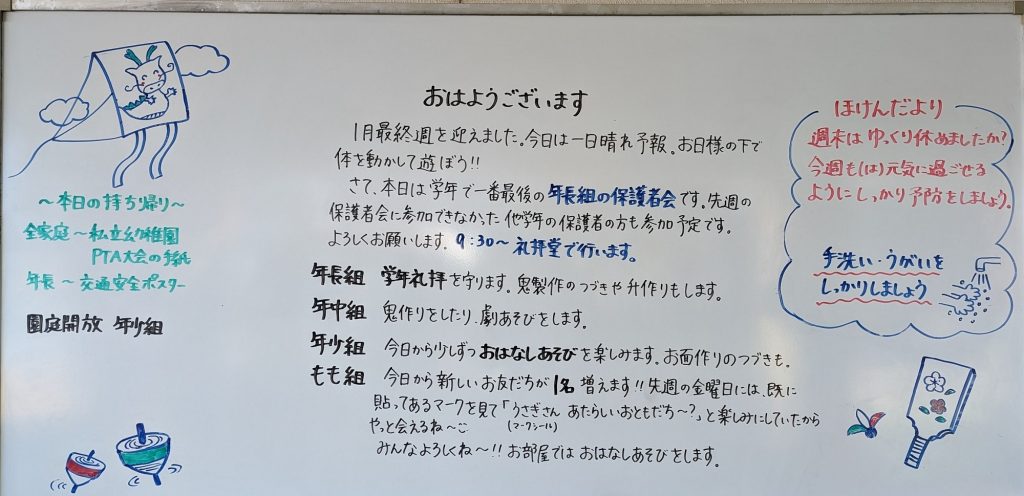 おはようございます
1月最終週を迎えました。今日は一日晴れ予報。お日様の下で
体を動かして遊ぼう!!
さて、本日は学年で一番最後の年長組の保護者会です。先週の
保護者会に参加できなかった他学年の保護者の方も参加予定です。
よろしくお願いします。9:30〜礼拝堂で行います。
年長組 学年礼拝を守ります。鬼製作のつづきや升作りもします。
年中組 鬼作りをしたり、劇あそびをします。
年少組 今日から少しずつおはなしあそびを楽しみます。お面作りのつづきも。
もも組 今日から新しいお友だちが1名増えます!!先週の金曜日には、既に
貼ってあるマークを見て「うさぎさん あたらしいおともだち〜?」と楽しみにしていたから
(マークシール)
やっと会えるね〜
みんなよろしくね〜!!お部屋ではおはなしあそびをします。
〜本日の持ち帰り〜
全家庭〜私立幼稚園
PTA大会の
年長〜交通安全ポスター
園庭開放 年少組
ほけんだより
週末はゆっくり休めましたか?
今週も(は)元気に過ごせる
ようにしっかり予防をしましょう。
手洗い・うがいを
しっかりしましょう